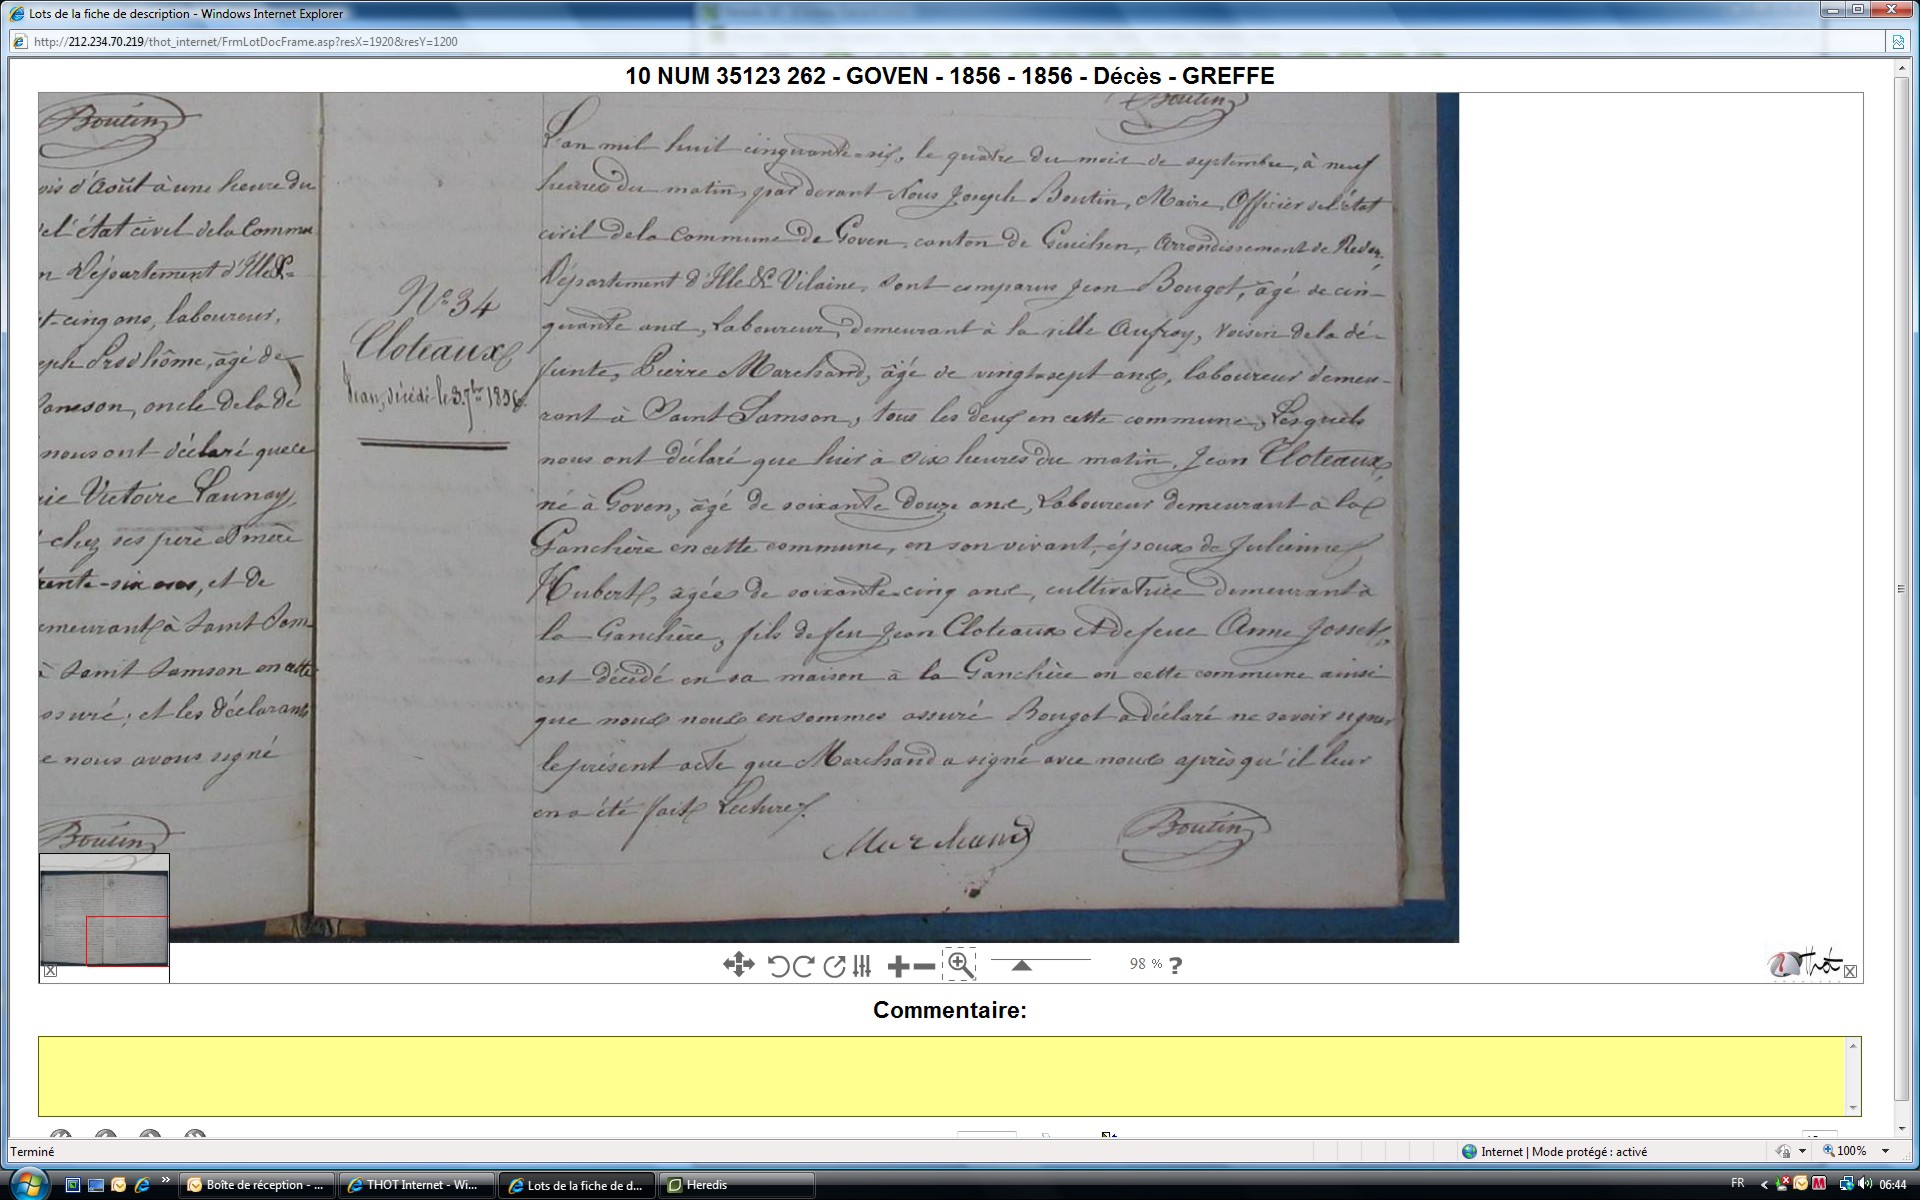 Lots de la fiche de description - Windows Internet Explorer
http://212.234.70.219/thot_internet/FrmLotDocFrame.asp?resX=1920&resY=1200
10 NUM 35123 262 - GOVEN - 1856 - 1856 - Décès - GREFFE
Boutin
ois d'Août à une heure du
el'état civil dela Commu
n Département d'Ille&-
t-cinq ans, laboureur,
eph Prsdhôme, âgé de
Samson, oncle dela dé
nous ont déclaré que ce
rie Victoire Launay,
chez ses père et mère
trente-six ans, et de
emeurant à Saint Sam-
à Saint Samson en cette
ssuré; et les déclarants
e nous avons signé
Boutin
N° 34
Cloteaux
Jean, décédé le 3 7bre 1856.
Boutin
L'an mil huit cinquante-six, le quatre du mois de septembre, à neuf
heures du matin, par devant Nous Joseph Boutin, Maire, Officier del'état
civil dela Commune de Goven, canton de Guichen, Arrondissement de Redon,
Département d'Ille & Vilaine, sont comparus Jean Bougot, âgé de cin-
quante ans, Laboureur, demeurant à la ville Aufroy, voisin dela dé-
funte, Pierre Marchand, âgé de vingt-sept ans, laboureur demeu-
rant à Saint Samson, tous les deux en cette commune, Lesquels
nous ont déclaré que hier à six heures du matin, Jean Cloteaux,
né à Goven, âgé de soixante douze ans, Laboureur demeurant à la
Ganchère en cette commune, en son vivant, époux de Julienne
Hubert, agée de soixante-cinq ans, cultivatrice demeurant à
la Ganchère, fils de feu Jean Cloteaux et de feue Anne Josset,
est décédé en sa maison à la Ganchère en cette commune ainsi
que nous nous en sommes assuré Bougot a déclaré ne savoir signer
le présent acte que Marchand a signé avec nous après qu'il leur
en a été fait Lecture.
Marchand Boutin
98 % ?
Thot
Commentaire:
Terminé
Internet | Mode protégé : activé
100%
Boîte de réception - ...
THOT Internet - Wi...
Lots de la fiche de d...
Heredis
FR
06:44